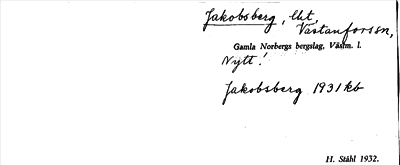 Jakobsberg, lht,
Västanforssn,
Gamla Norbergs bergslag, Västm. l.
Nytt!
Jakobsberg 1931 kb
H. Ståhl 1932.